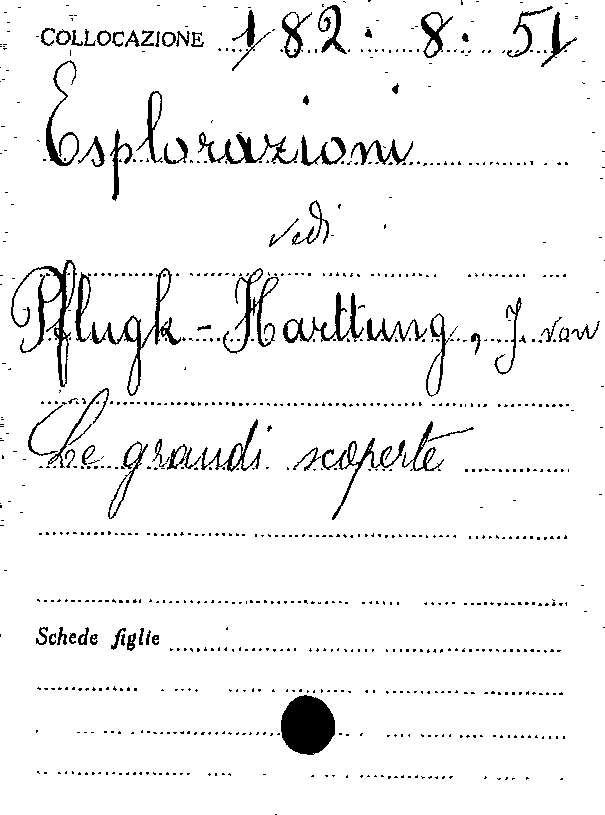 COLLOCAZIONE 182. 8. 51
Esplorazioni
vedi
Pflugk-Harttung, J. von
Le grandi scoperte
Schede figlie